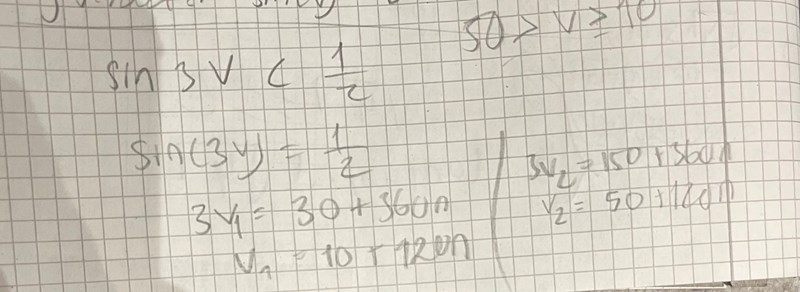 50 > v ≥ 10
sin 3V < 1/2
sin(3v) = 1/2
3v₁ = 30 + 360n
v₁ = 10 + 120n
3v₂ = 150 + 360n
v₂ = 50 + 120n